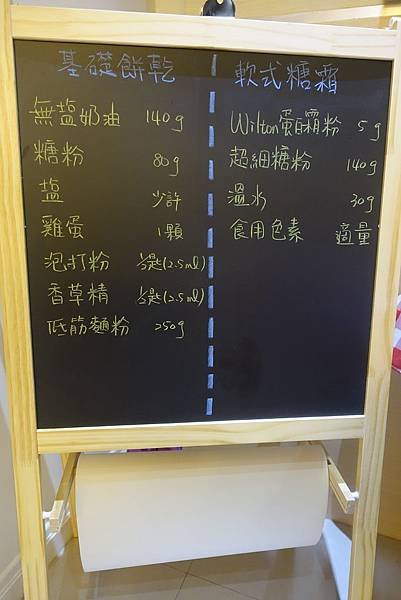 基礎餅乾
無盐奶油 140g
糖粉 80g
盐 少許
雞蛋 1顆
泡打粉 ½匙(2.5ml)
香草精 ½匙(2.5ml)
低筋麵粉 250g
軟式糖霜
Wilton蛋白霜粉 5g
超細糖粉 140g
溫水 30g
食用色素 適量